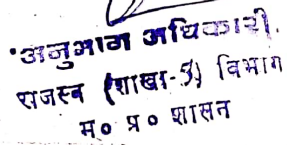 अनुभाग अधिकारी.
राजस्व (शाखा-5) विभाग
म० प्र० शासन